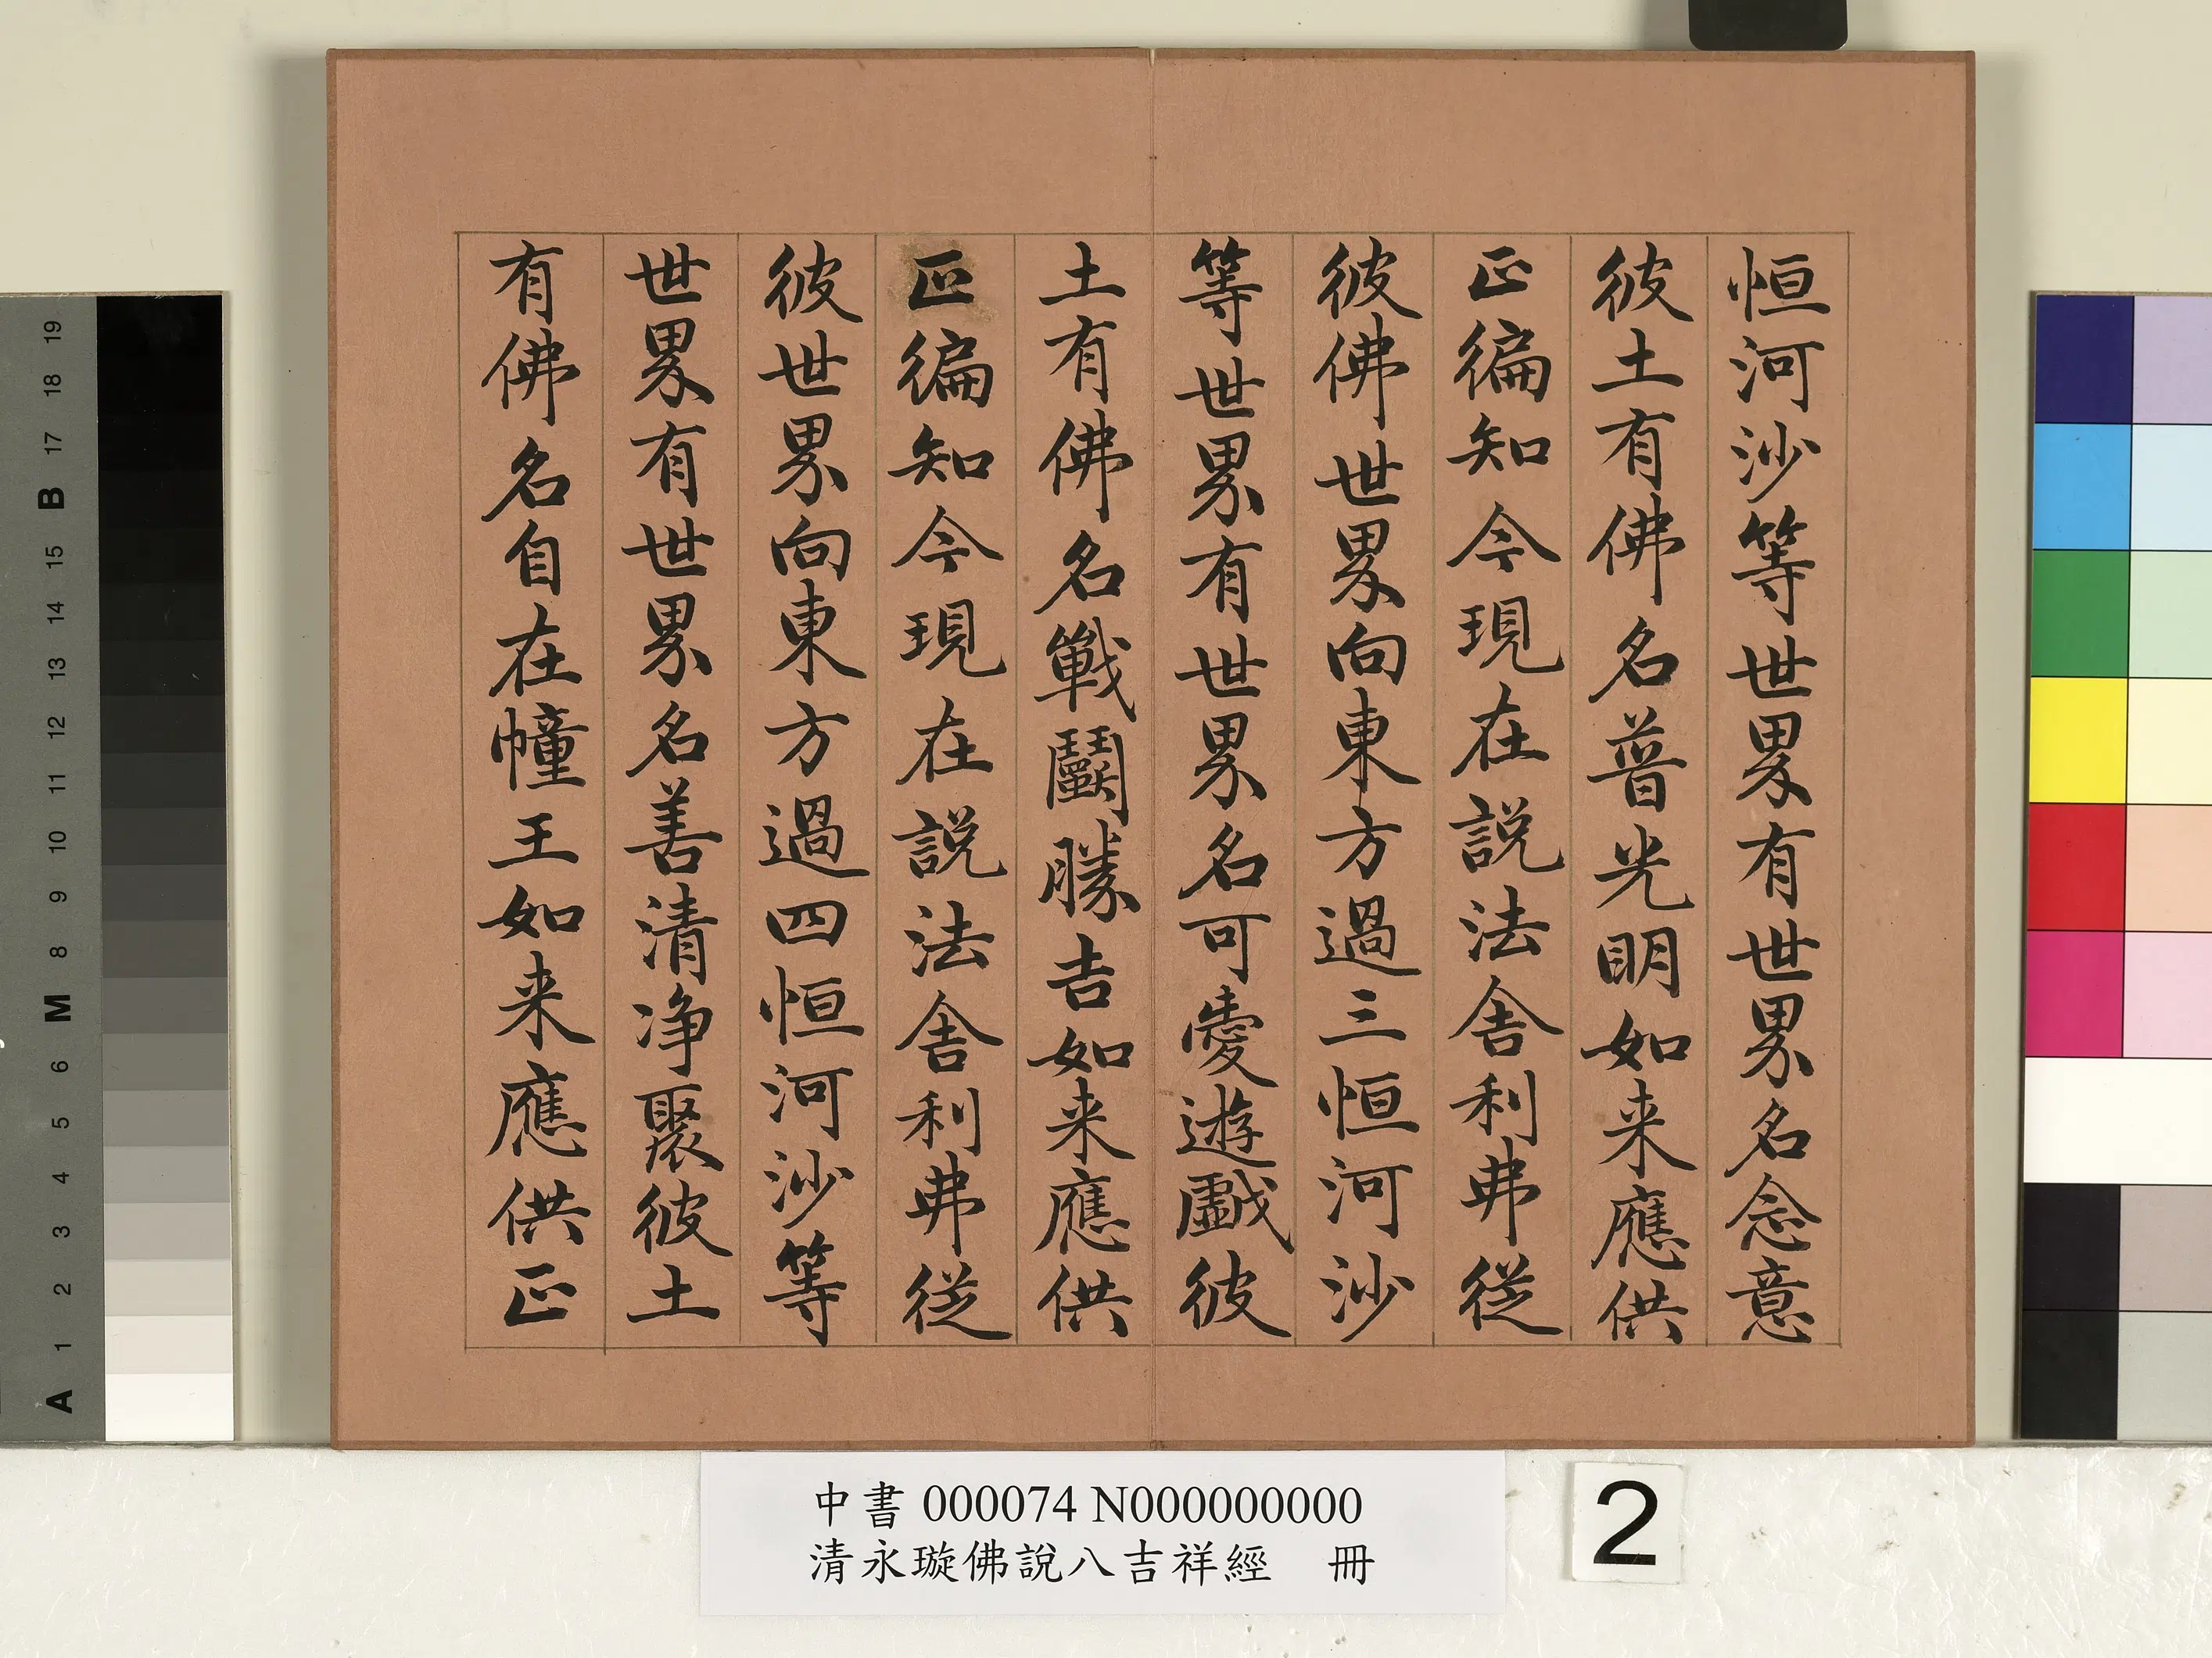 恒河沙等世界有世界名念意
彼土有佛名普光明如来應供
正徧知今現在説法舎利弗従
彼佛世界向東方過三恒河沙
等世界有世界名可愛遊戯彼
土有佛名戰鬬勝吉如来應供
正徧知今現在説法舎利弗従
彼世界向東方過四恒河沙等
世界有世界名善清淨聚彼土
有佛名自在幢王如来應供正
中書 000074 N000000000
清永璇佛說八吉祥經 冊
2
19
18
17
B
15
14
13
12
11
10
9
8
M
6
5
4
3
2
1
A